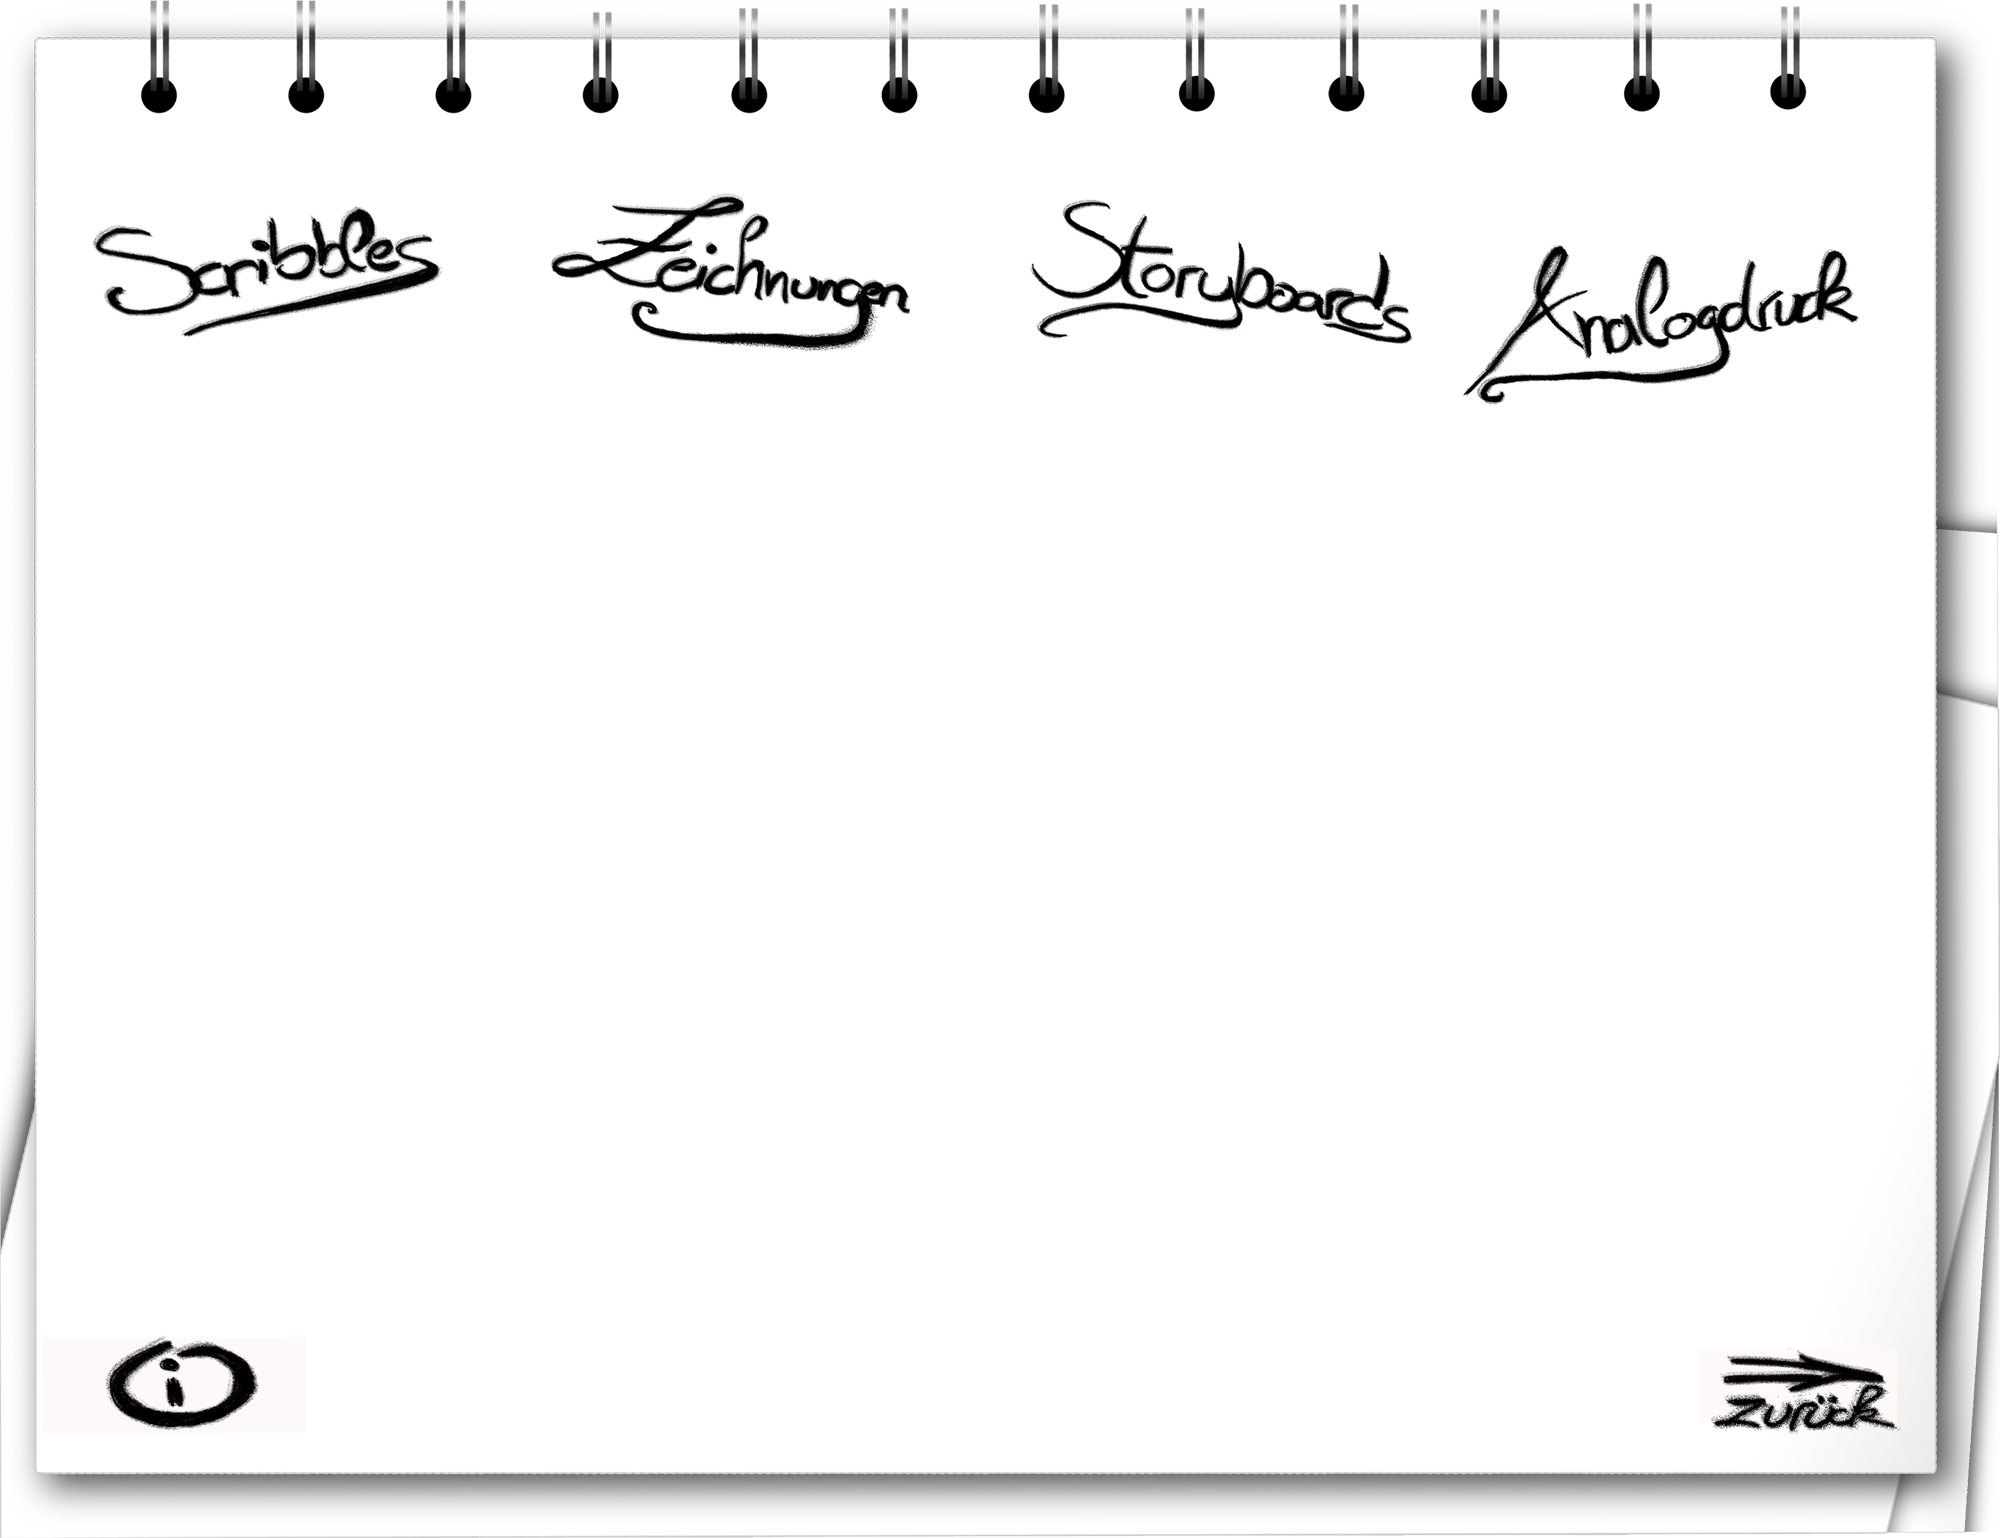 Scribbles Zeichnungen Storyboards Analogdruck
i
zurück